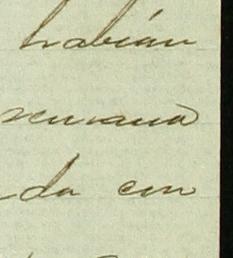 habían
semana
da con